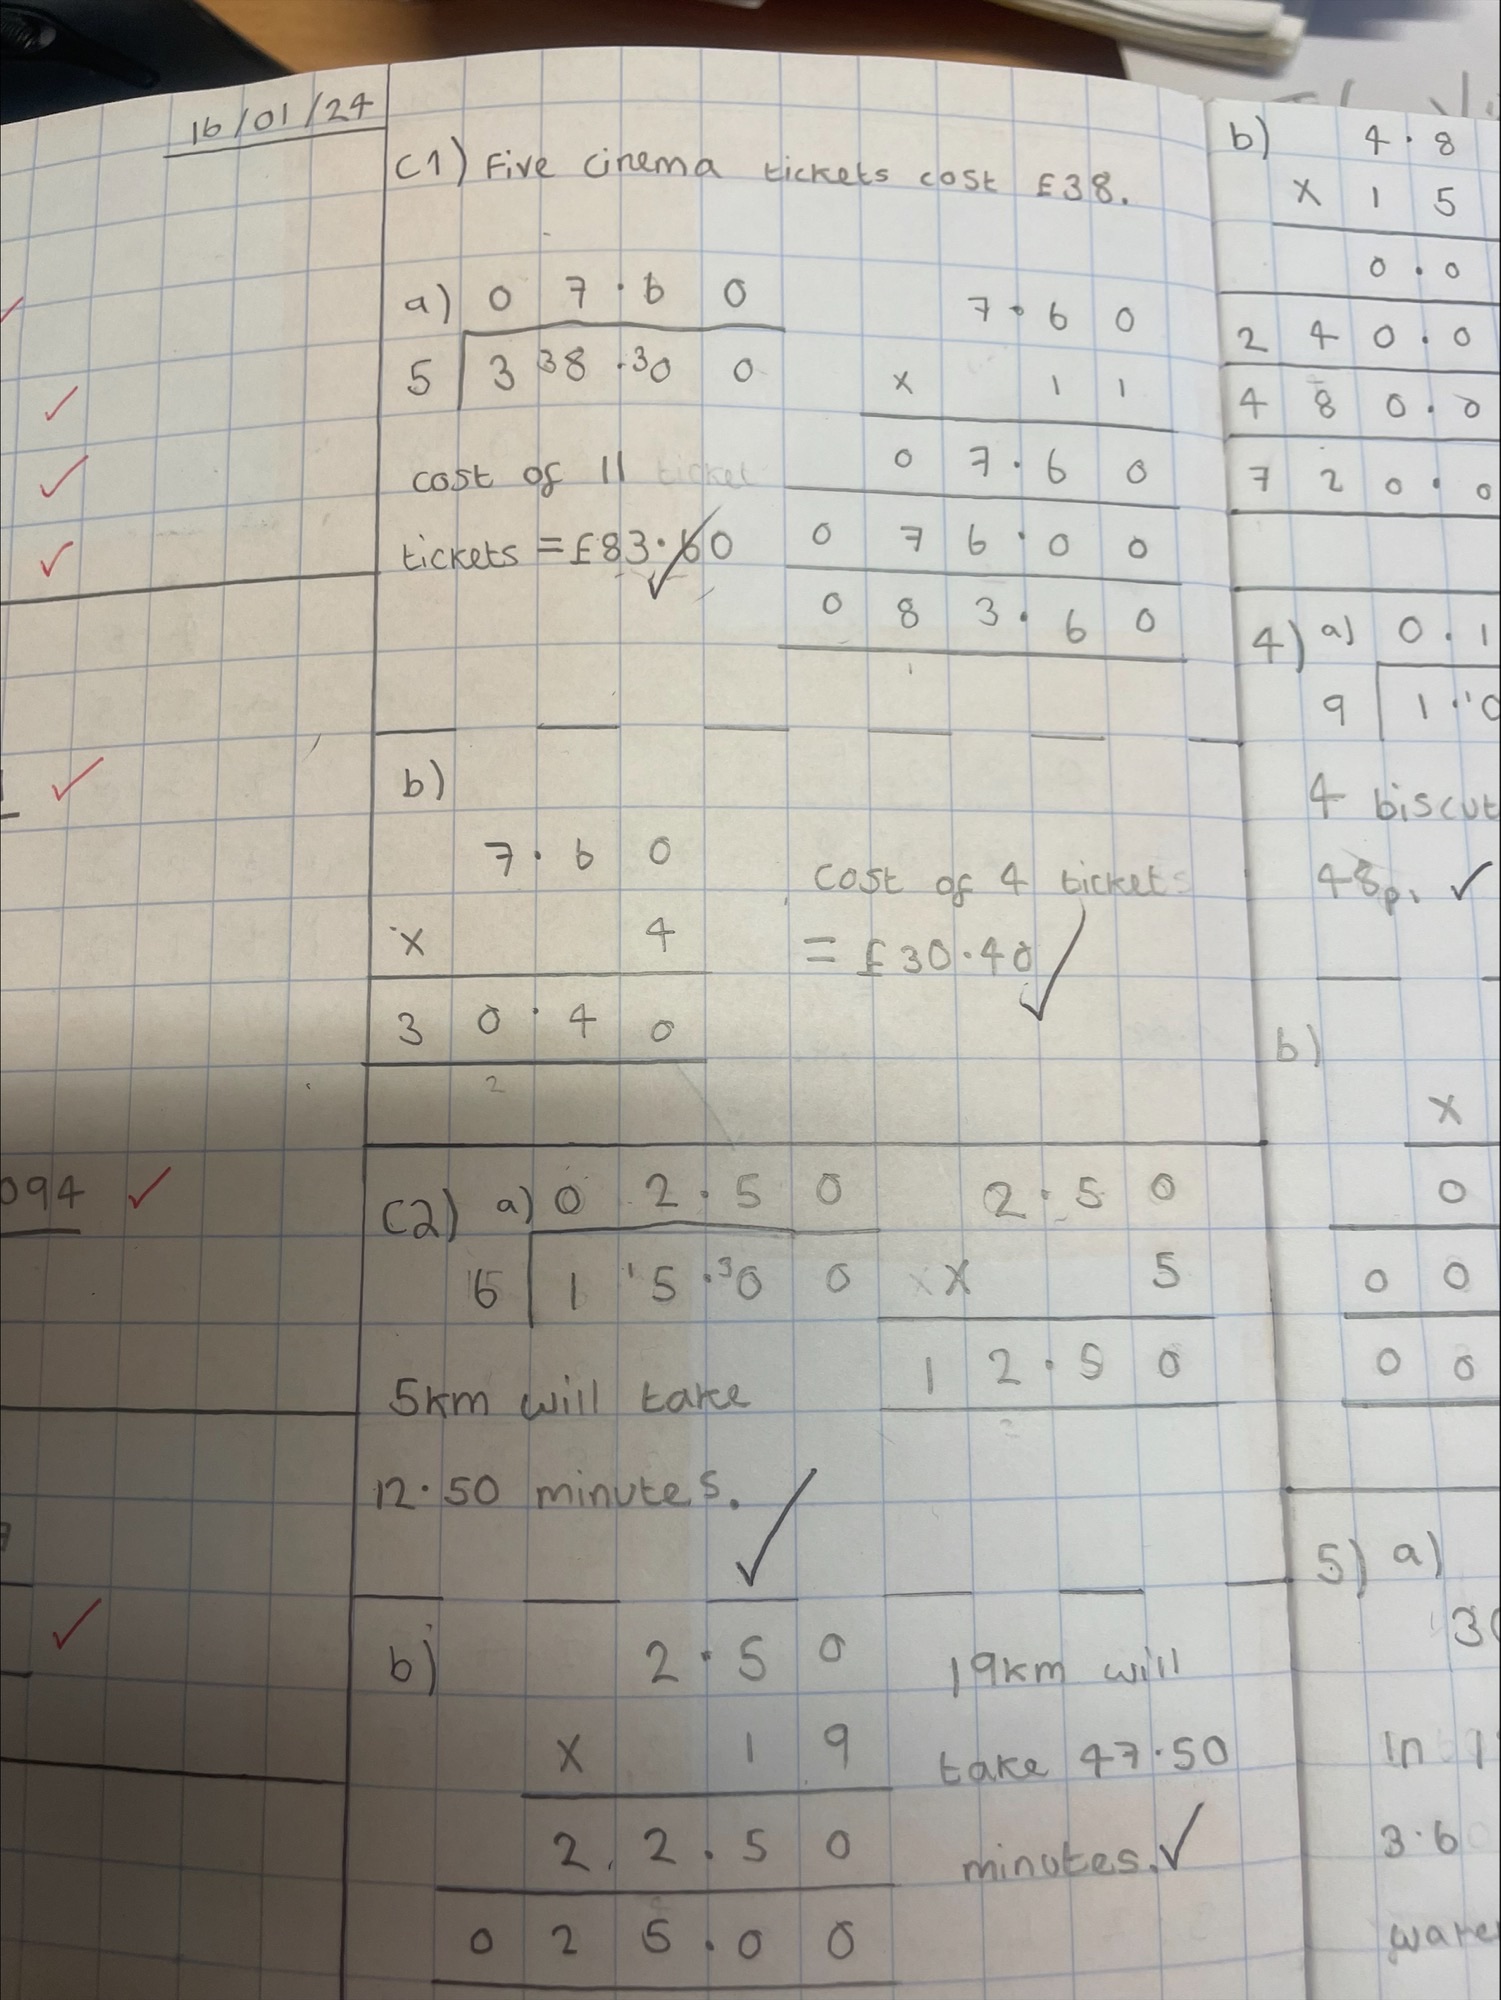 16/01/24
C1) Five cinema tickets cost £38.
a) 0 7 . 6 0
5 3 38 . 30 0
7 . 6 0
x 1 1
0 7 . 6 0
0 7 6 . 0 0
0 8 3 . 6 0
1
cost of 11 ticket
tickets = £83.60
b)
7 . 6 0
x 4
3 0 . 4 0
2
cost of 4 tickets
= £30.40
094
C2) a) 0 2 . 5 0
6 1 15 . 30 0
2 . 5 0
x 5
1 2 . 5 0
2
5km will take
12.50 minutes.
b) 2 . 5 0
x 1 9
2 2 . 5 0
0 2 5 . 0 0
19km will
take 47.50
minutes.
b) 4 . 8
x 1 5
0 . 0
2 4 0 . 0
4 8 0 . 0
7 2 0 . 0
4) a) 0 . 1
9 1 . 10
4 biscut
48p.
b)
x
0
0 0
0 0
5) a)
30
in 1
3.6
water